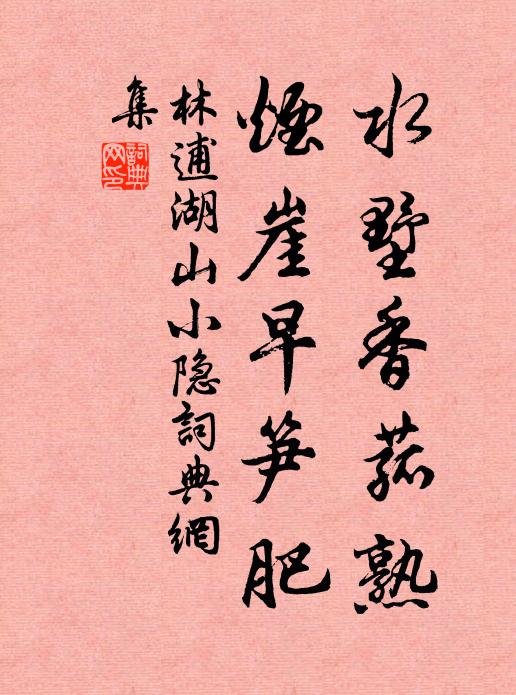 水墅香菰熟
煙崖早笋肥
林逋湖山小隐詞典網
集
詞典網印